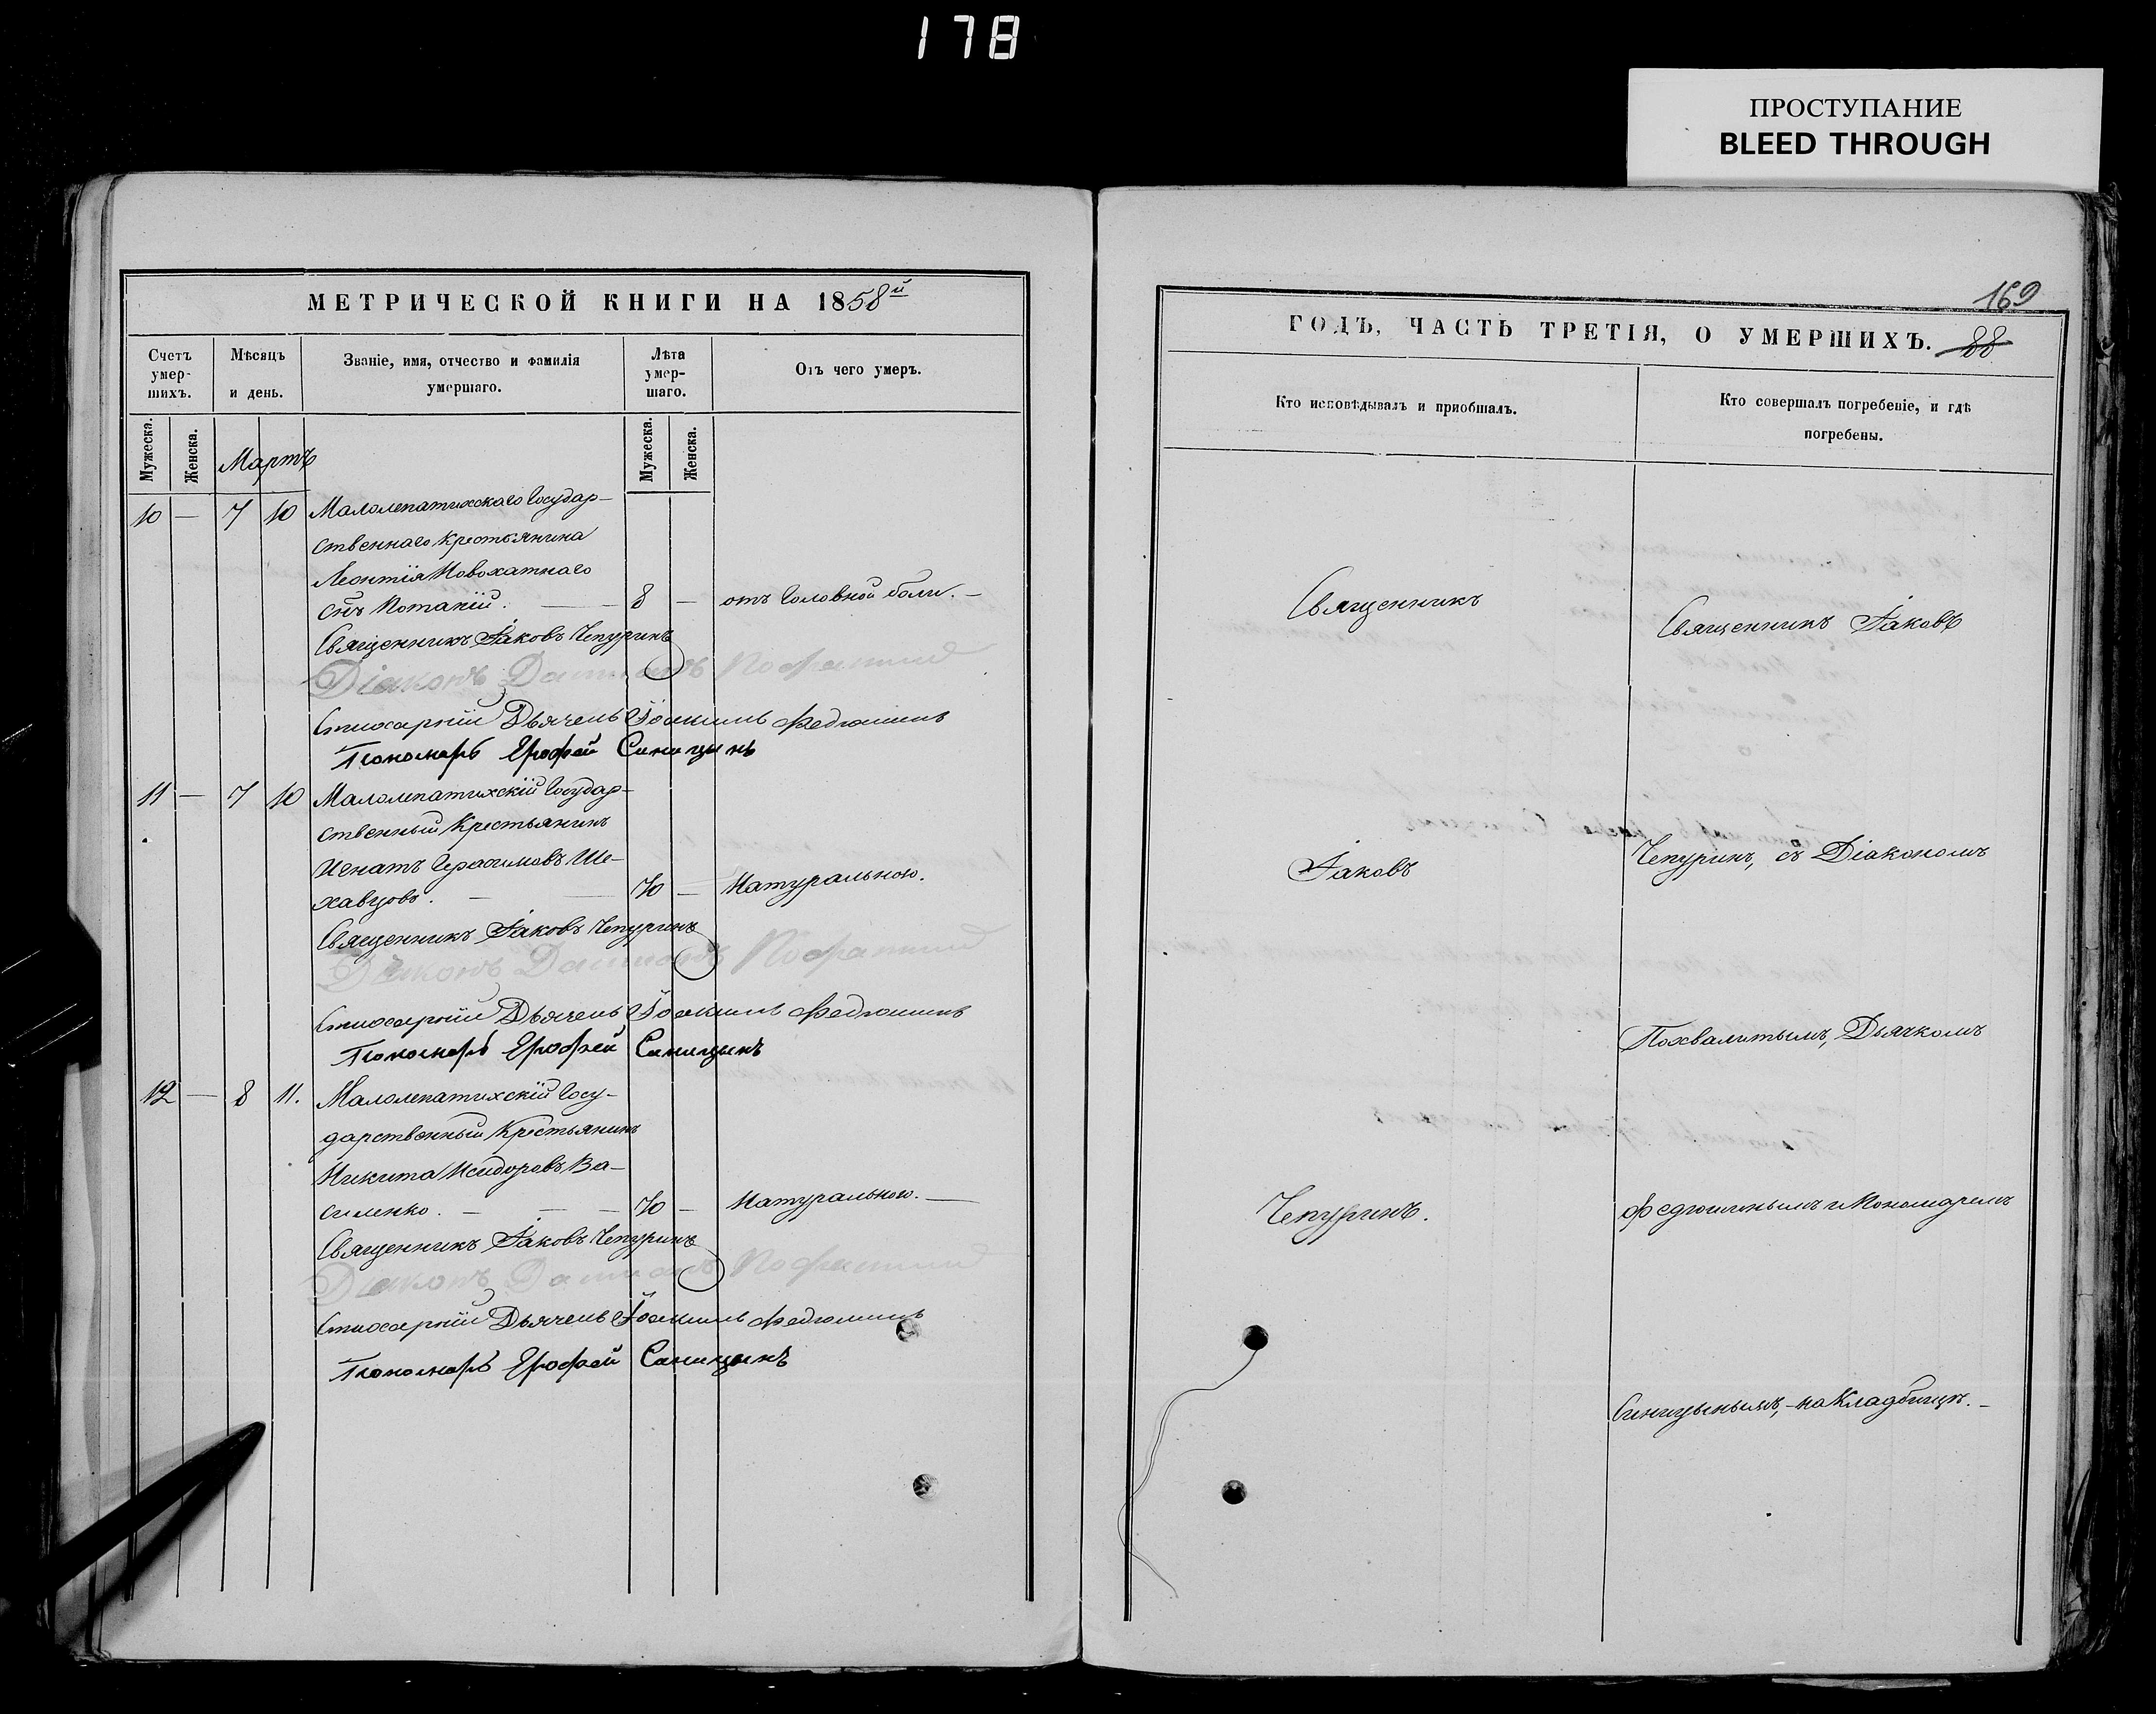 178
ПРОСТУПАНИЕ
BLEED THROUGH
МЕТРИЧЕСКОЙ КНИГИ НА 1858й
Счетъ умер-шихъ.
Мѣсяцъ и день.
Званіе, имя, отчество и фамилія умершаго.
Лѣта умер-шаго.
Отъ чего умеръ.
Мужеска.
Женска.
Мартъ
Мужеска.
Женска.
10 — 7 10 Малолепатихскаго Государ-
ственнаго Крестьянина
Леонтія Новохатнаго
сنъ Потапій. — 8 — отъ Головной боли. —
Священникъ Іаковъ Чепуринъ
Діаконъ
Стихарный Дьячекъ Іоакимъ Федюшинъ
Пономарь Ерофей Синицынъ
11 — 7 10 Малолепатихскій Государ-
ственный Крестьянинъ
Игнатъ Герасимовъ Ше-
хавцовъ. — 70 — Натуральною.
Священникъ Іаковъ Чепуринъ
Діаконъ
Стихарный Дьячекъ Іоакимъ Федюшинъ
Пономарь Ерофей Синицынъ
12 — 8 11. Малолепатихскій Госу-
дарственный Крестьянинъ
Никита Исидоровъ Ва-
силенко. — — — 70 — Натуральною. —
Священникъ Іаковъ Чепуринъ
Діаконъ
Стихарный Дьячекъ Іоакимъ Федюшинъ
Пономарь Ерофей Синицынъ
169
ГОДЪ, ЧАСТЬ ТРЕТІЯ, О УМЕРШИХЪ. 88
Кто исповѣдывалъ и приобщалъ.
Кто совершалъ погребеніе, и гдѣ погребены.
Священникъ
Священникъ Іаковъ
Іаковъ
Чепуринъ, съ Діакономъ
Похвалитымъ, Дьячкомъ
Чепуринъ.
Федюшинымъ и Пономаремъ
Синицынымъ, — на Кладбищѣ. —